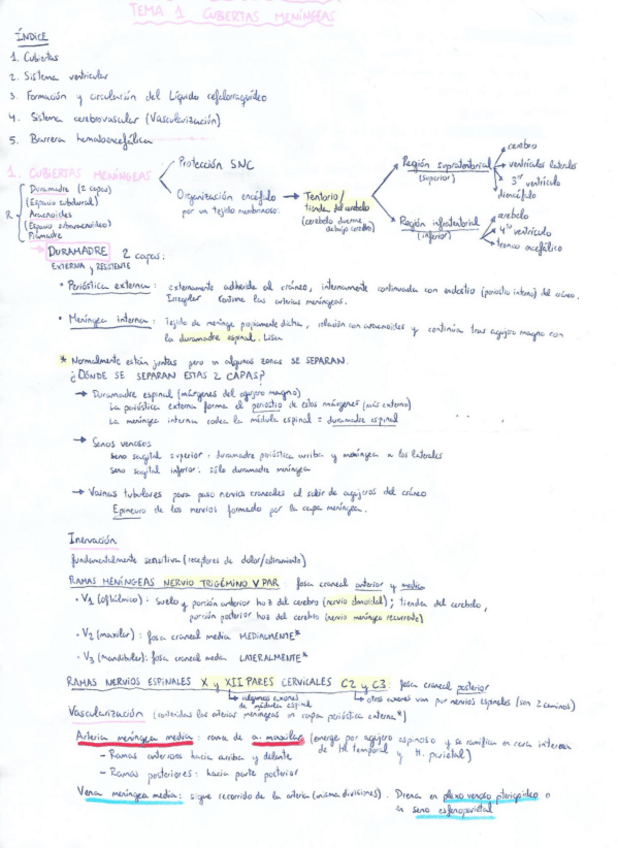 TEMA 1 CUBERTAS MENÍNGEAS
ÍNDICE
1. Cubiertas
2. Sistema ventricular
3. Formación y circulación del Líquido cefalorraquídeo
4. Sistema cerebrovascular (Vascularización)
5. Barrera hematoencefálica
1. CUBIERTAS MENÍNGEAS
Protección SNC
Organización encéfalo
por un tejido membranoso.
Tentorio/
tienda del cerebelo
(cerebelo duerme
debajo cerebro)
Región supratentorial
(superior)
cerebro
ventrículos laterales
3er ventrículo
diencéfalo
Región infratentorial
(inferior)
cerebelo
4º ventrículo
tronco encefálico
Duramadre (2 capas)
(Espacio subdural)
R Aracnoides
(Espacio subaracnoideo)
Piamadre
DURAMADRE 2 capas:
EXTERNA y RESISTENTE
• Perióstica externa: externamente adherida al cráneo, internamente continuada con endostio (periostio interno) del cráneo.
Irregular Contiene las arterias meníngeas.
• Meníngea interna: Tejido de meninge propiamente dicha, relación con aracnoides y continúa tras agujero magno con
la duramadre espinal. Lisa
* Normalmente están juntas pero en algunas zonas SE SEPARAN.
¿DÓNDE SE SEPARAN ESTAS 2 CAPAS?
→ Duramadre espinal (márgenes del agujero magno)
La perióstica externa forma el periostio de estos márgenes (más externo)
La meníngea interna rodea la médula espinal = duramadre espinal
→ Senos venosos
Seno sagital superior: duramadre perióstica arriba y meníngea a los laterales
Seno sagital inferior: sólo duramadre meníngea
→ Vainas tubulares para paso nervios craneales al salir de agujeros del cráneo
Epineuro de los nervios formado por la capa meníngea.
Inervación
fundamentalmente sensitiva (receptores de dolor/estiramiento)
RAMAS MENÍNGEAS NERVIO TRIGÉMINO V PAR: fosa craneal anterior y media
• V1 (oftálmico): Suelo y porción anterior hoz del cerebro (nervio etmoidal); tienda del cerebelo,
porción posterior hoz del cerebro (nervio meníngeo recurrente)
• V2 (maxilar): fosa craneal media MEDIALMENTE*
• V3 (mandibular): fosa craneal media LATERALMENTE*
RAMAS NERVIOS ESPINALES X y XII PARES CERVICALES C2 y C3: fosa craneal posterior
algunos axones
de médula espinal
otros axones van por nervios espinales (son 2 caminos)
Vascularización (contenidas las arterias meníngeas en capa perióstica externa*)
Arteria meníngea media: rama de a. maxilar (emerge por agujero espinoso y se ramifica en cara interna
de H. temporal y H. parietal)
- Ramas anteriores hacia arriba y delante
- Ramas posteriores: hacia parte posterior
Vena meníngea media: sigue recorrido de la arteria (misma divisiones). Drena en plexo venoso pterigoideo o
en seno esfenoparietal